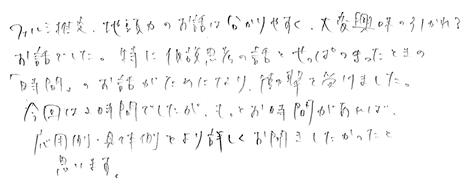 フェルミ推定、地頭力のお話は分かりやすく、大変興味のひかれる
お話でした。特に仮説思考の話とせっぱつまったときの
「時間」のお話がためになり、感銘を受けました。
今回は2時間でしたが、もっとお時間があれば、
応用例・具体例とより詳しくお聞きしたかったと
思います。